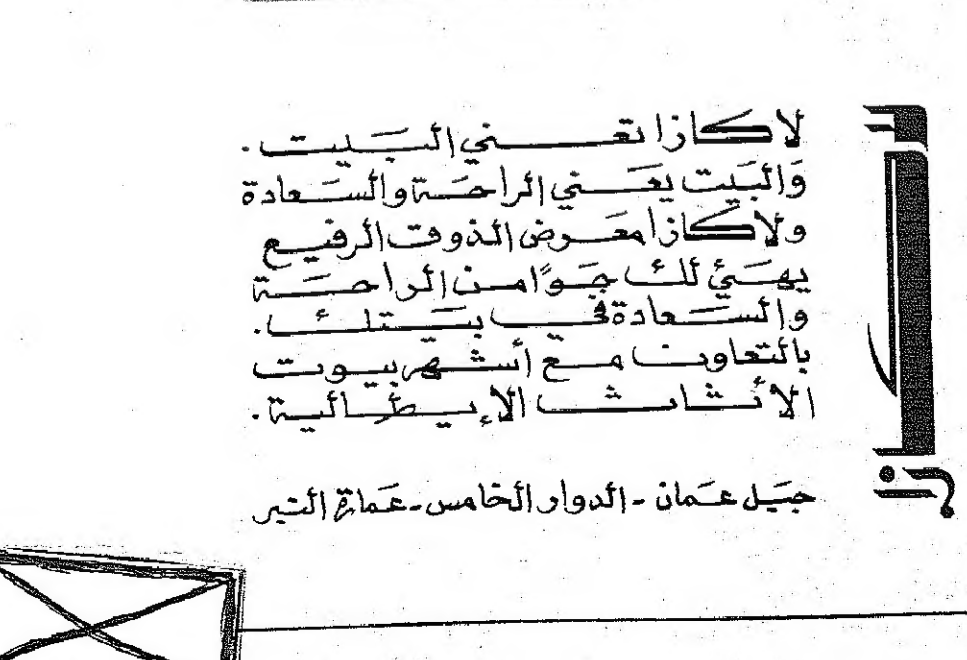 لاكازا تعني البَيت.
وَالبَيت يعَني الراحَة والسَعادة
ولاكازا معَرض الذوق الرفيع
يهَيئ لك جَوًا من الراحَة
والسَعادة في بيَتك.
بالتعاون مع أشهر بيوت
الأثاث الإيطالية.
جبَل عمَان - الدوار الخامس - عمَارة التبر